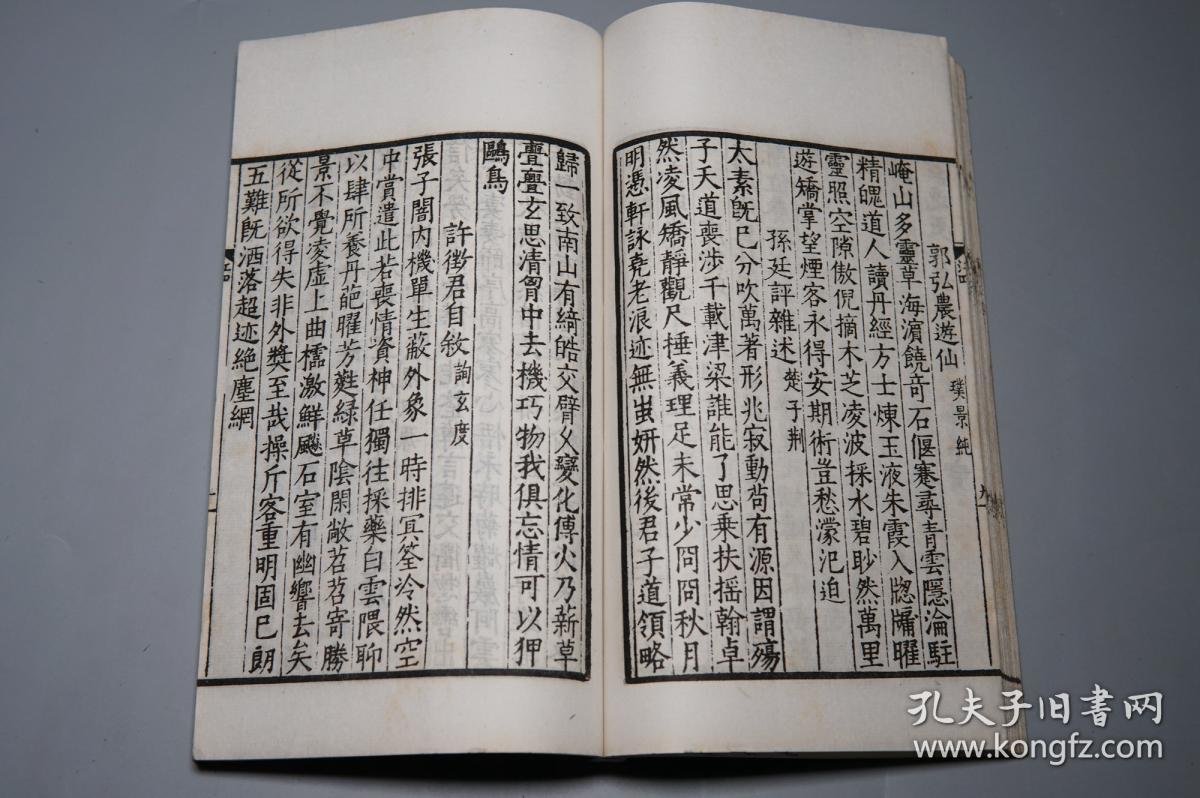 郭弘農遊仙 璞景純
崦山多靈草海濵饒竒石偃蹇尋青雲隱淪駐
精魄道人讀丹經方士煉玉液朱霞入牎牖曜
靈照空隙傲倪摘木芝凌波採水碧眇然萬里
遊矯掌望煙客永得安期術豈愁濛汜迫
孫廷評雜述 楚子荆
太素旣已分吹萬著形兆寂動苟有源因謂殤
子夭道喪涉千載津梁誰能了思乗扶揺翰卓
然凌風矯静觀尺棰義理足未常少冏冏秋月
明憑軒詠堯老浪迹無蚩妍然後君子道領略
歸一致南山有綺皓交臂久變化傅火乃薪草
亹亹玄思清胷中去機巧物我俱忘情可以狎
鷗鳥
許徴君自敘 詢玄度
張子闇内機單生蔽外象一時排冥筌泠然空
中賞遣此若喪情資神任獨往採藥白雲隈聊
以肆所養丹葩曜芳蕤緑草陰閑敞苕苕寄勝
景不覺凌虚上曲櫺激鮮飇石室有幽響去矣
從所欲得失非外奬至哉操斤客重明固已朗
五難旣洒落超迹絶塵網
孔夫子旧书网
www.kongfz.com